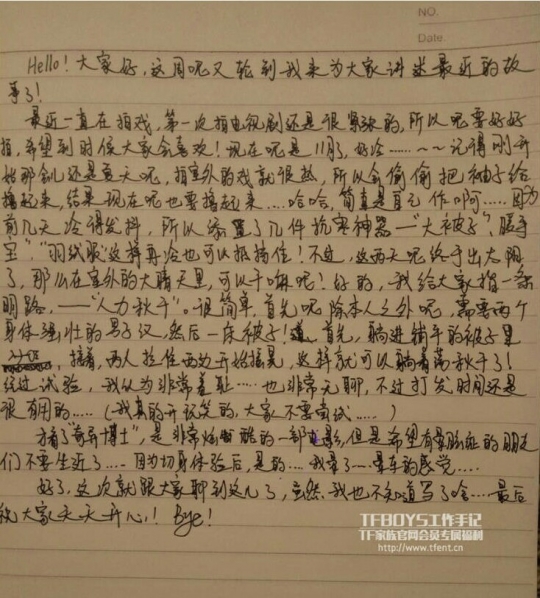 NO.
Date
Hello！大家好，这周呢又轮到我来为大家讲述最近的故
事了！
最近一直在拍戏，第一次拍电视剧还是很紧张的，所以呢要好好
拍，希望到时候大家会喜欢！现在呢是11月了，好冷……~~记得刚开
始那会儿还是夏天呢，拍室外的戏就很热，所以会偷偷把袖子给
撸起来，结果现在呢也要撸起来……哈哈，简直是自作啊……因为
前几天冷得发抖，所以添置了几件抗寒神器—"大被子"，"暖手
宝"，"羽绒服"这样再冷也可以抵挡住！不过，这两天呢终于出太阳
了，那么在室外的大晴天里，可以干嘛呢！好的，我给大家指一条
明路，——"人力秋千"。很简单，首先呢除本人之外呢，需要两个
身体强壮的男子汉，然后一床被子！首先，躺进铺平的被子里
，接着，两人拉住两边开始摇晃，这样就可以躺着荡秋千了！
经过试验，我认为非常羞耻……也非常无聊，不过打发时间还是
很有用的……（我真的开玩笑的，大家不要尝试……）
才看了"奇异博士"，是非常炫酷的一部电影，但是希望有晕的朋友
们不要坐近了……因为切身体验后，是的……我晕了……晕车的感觉……
好了，这次就跟大家聊到这儿了，虽然，我也不知道写了啥……最后
祝大家天天开心！！Bye！
TFBOYS工作手记
TF家族官网会员专属福利
http://www.tfent.cn